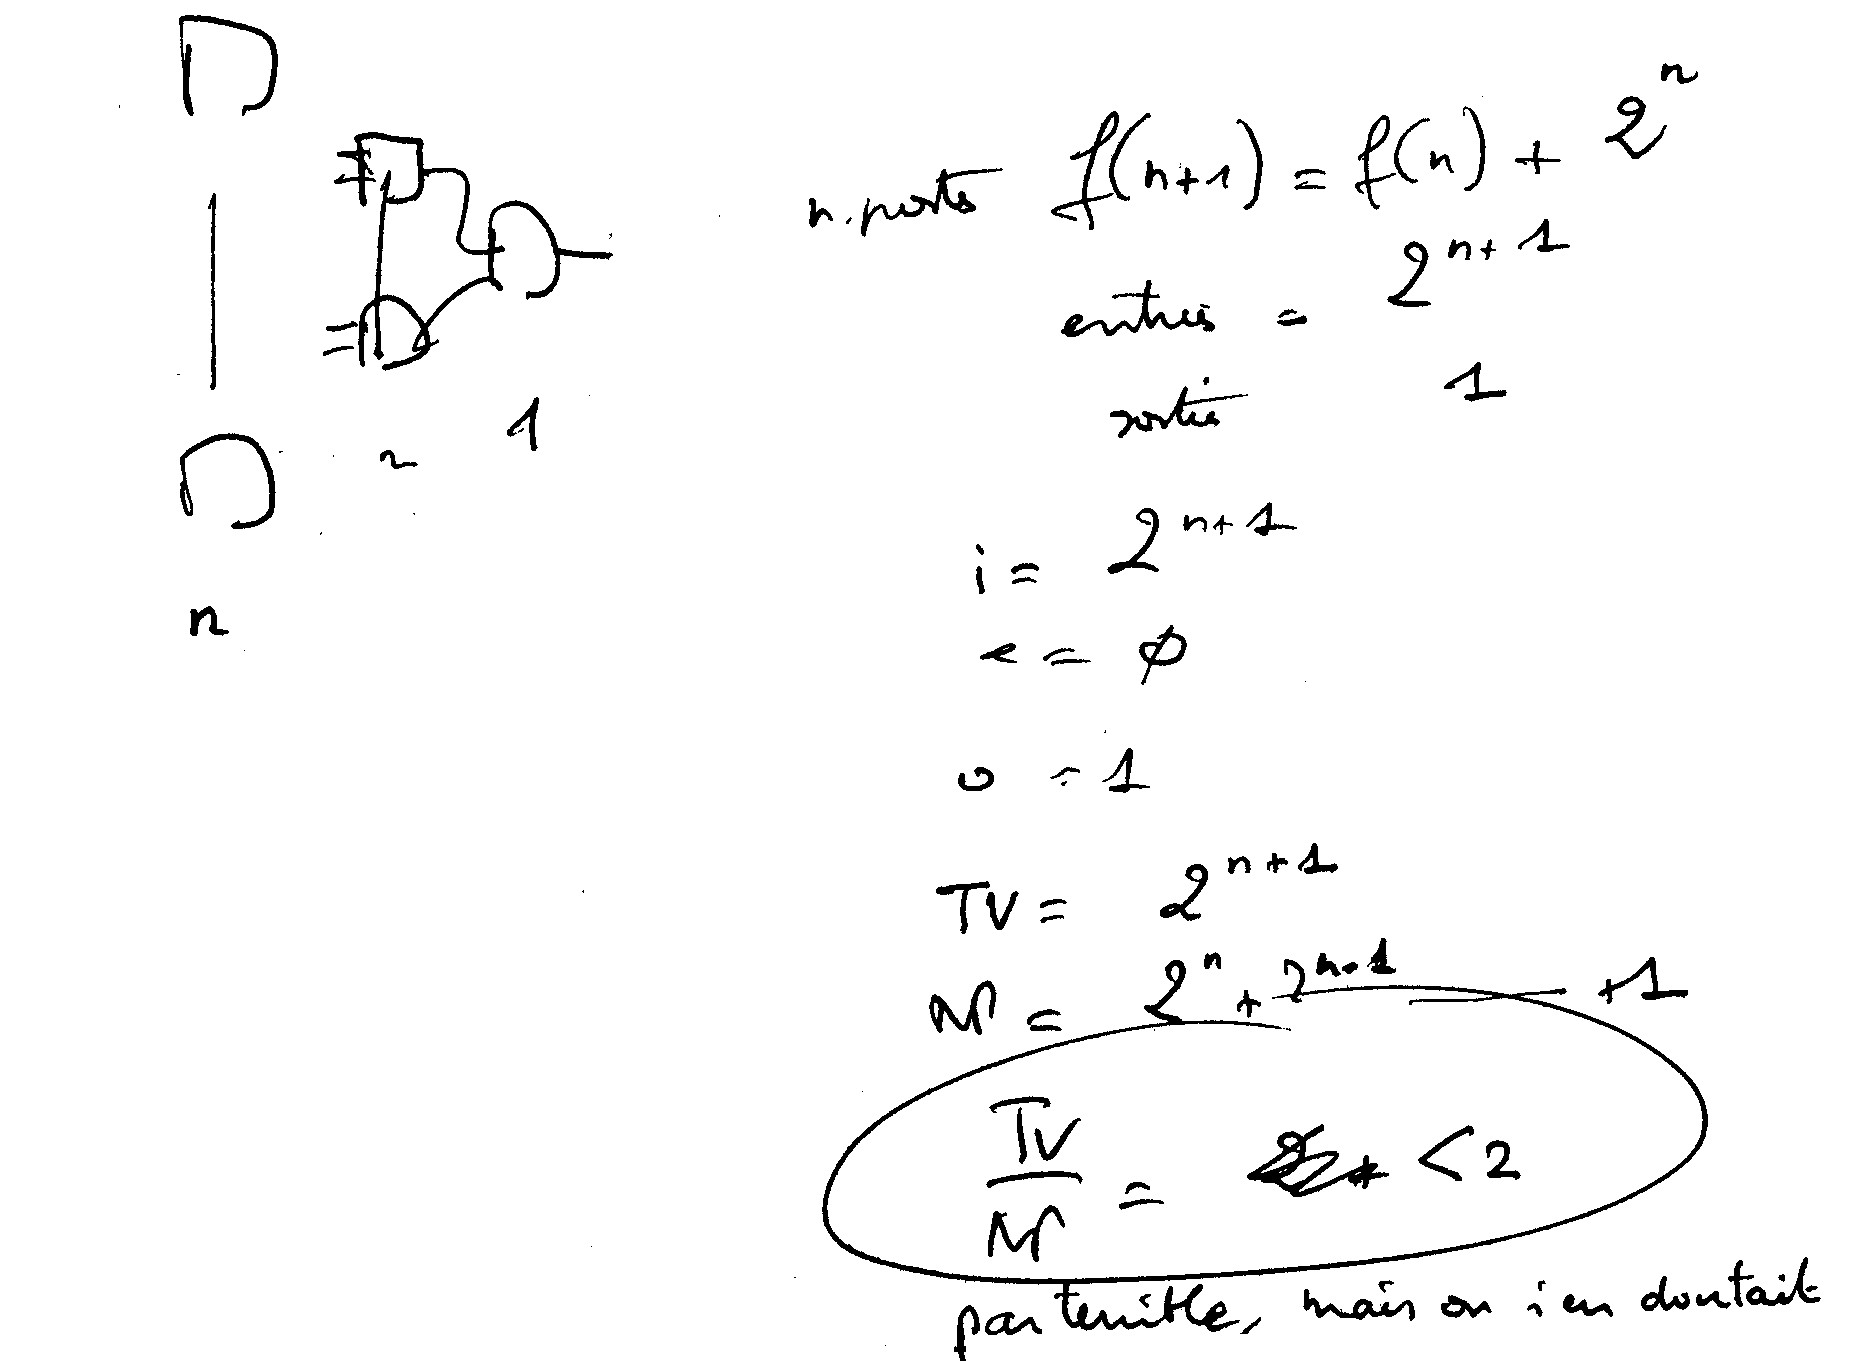 n. portes f(n+1) = f(n) + 2^n
entrées = 2^{n+1}
sortie 1
2 1
n
i = 2^{n+1}
e = ∅
o = 1
TV = 2^{n+1}
= 2^n + 2^{n-1} +1
TV
= < 2
pas terrible, mais on s'en doutait